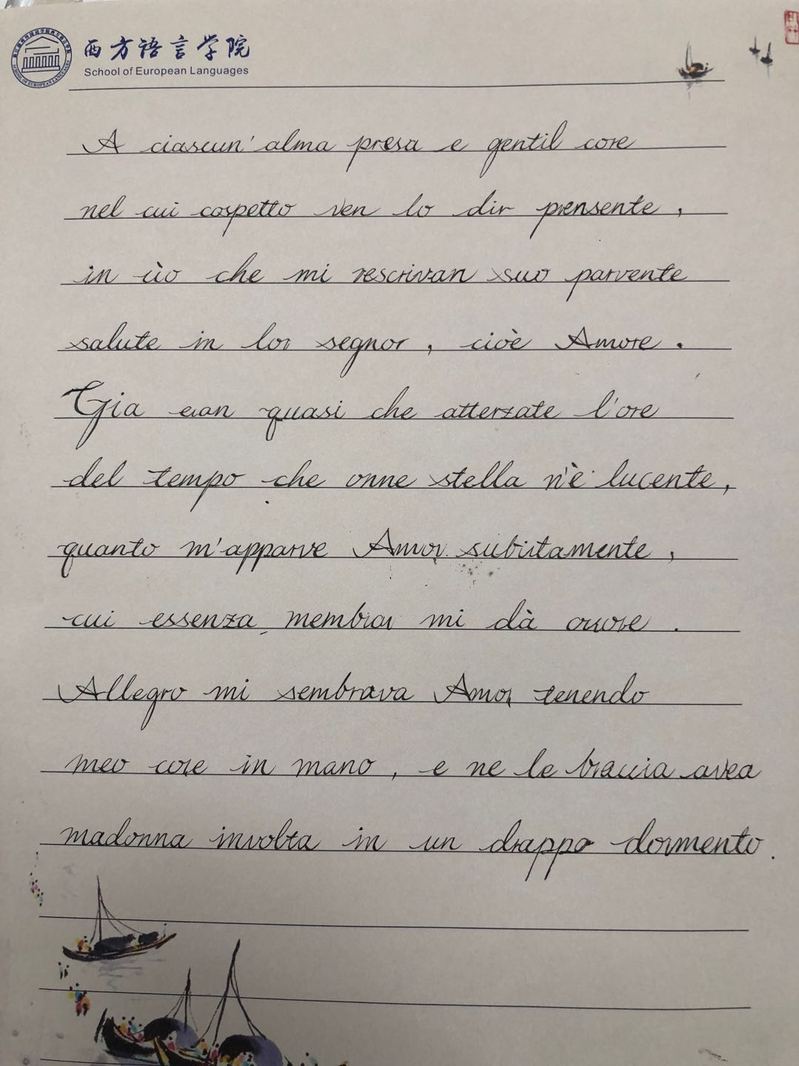 西方语言学院
School of European Languages
A ciascun' alma presa e gentil core
nel cui cospetto ven lo dir prensente,
in ciò che mi rescrivan suo parvente
salute in lor segnor, cioè Amore.
Gia eran quasi che atterzate l'ore
del tempo che onne stella n'è lucente,
quanto m'apparve Amor subitamente,
cui essenza membrar mi dà orrore.
Allegro mi sembrava Amor tenendo
meo core in mano, e ne le braccia avea
madonna involta in un drappo dormento.